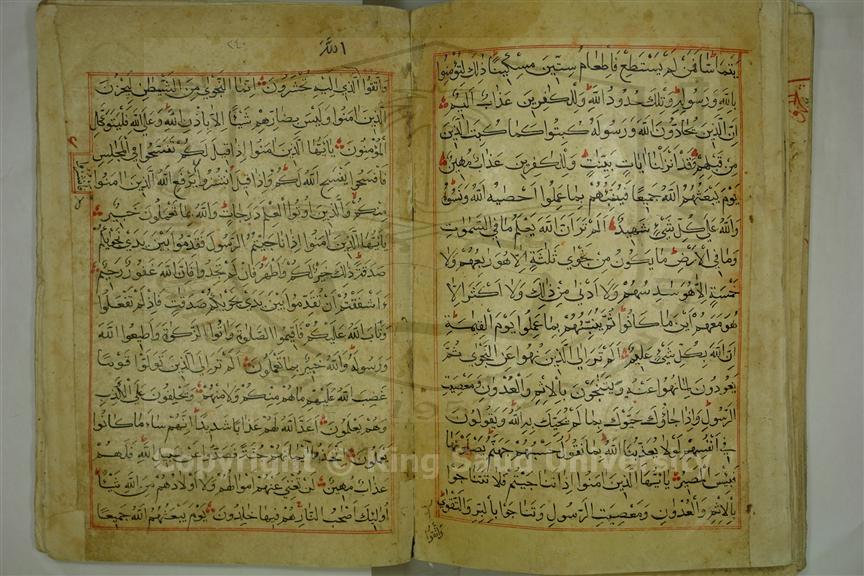 يتماسا فمن لم يستطع فاطعام ستين مسكينا ذلك لتؤمنوا
بالله ورسوله وتلك حدود الله وللكافرين عذاب اليم
ان الذين يحادون الله ورسوله كبتوا كما كبت الذين
من قبلهم وقد انزلنا ايات بينت وللكفرين عذاب مهين
يوم يبعثهم الله جميعا فينبئهم بما عملوا احصيه الله ونسوه
والله على كل شيء شهيد الم تر ان الله يعلم ما في السموت
وما في الارض ما يكون من نجوى ثلثة الا هو رابعهم ولا
خمسة الا هو سادسهم ولا ادنى من ذلك ولا اكثر الا
هو معهم اين ما كانوا ثم ينبئهم بما عملوا يوم القيمة
ان الله بكل شيء عليم الم تر الى الذين نهوا عن النجوى ثم
يعودون لما نهوا عنه ويتنجون بالاثم والعدون ومعصيت
الرسول واذا جاؤك حيوك بما لم يحيك به الله ويقولون
في انفسهم لولا يعذبنا الله بما نقول حسبهم جهنم يصلونها
فبئس المصير يا ايها الذين امنوا اذا تناجيتم فلا تتناجوا
بالاثم والعدون ومعصيت الرسول وتناجوا بالبر والتقوى
واتقوا
الله
٢٤٠
واتقوا الله الذي اليه تحشرون انما النجوى من الشيطن ليحزن
الذين امنوا وليس بضارهم شيئا الا باذن الله وعلى الله فليتوكل
المؤمنون يا ايها الذين امنوا اذا قيل لكم تفسحوا في المجلس
فافسحوا يفسح الله لكم واذا قيل انشزوا فانشزوا يرفع الله الذين امنوا
منكم والذين اوتوا العلم درجات والله بما تعملون خبير
يا ايها الذين امنوا اذا ناجيتم الرسول فقدموا بين يدي نجويكم
صدقة ذلك خير لكم واطهر فان لم تجدوا فان الله غفور رحيم
ءاشفقتم ان تقدموا بين يدي نجويكم صدقت فاذ لم تفعلوا
وتاب الله عليكم فاقيموا الصلوة واتوا الزكوة واطيعوا الله
ورسوله والله خبير بما تعملون الم تر الى الذين تولوا قوما
غضب الله عليهم ما هم منكم ولا منهم ويحلفون على الكذب
وهم يعلمون اعد الله لهم عذابا شديدا انهم ساء ما كانوا
يعملون اتخذوا ايمانهم جنة فصدوا عن سبيل الله فلهم
عذاب مهين لن تغني عنهم اموالهم ولا اولادهم من الله شيئا
اولئك اصحب النار هم فيها خالدون يوم يبعثهم الله جميعا
Copyright © King Saud University